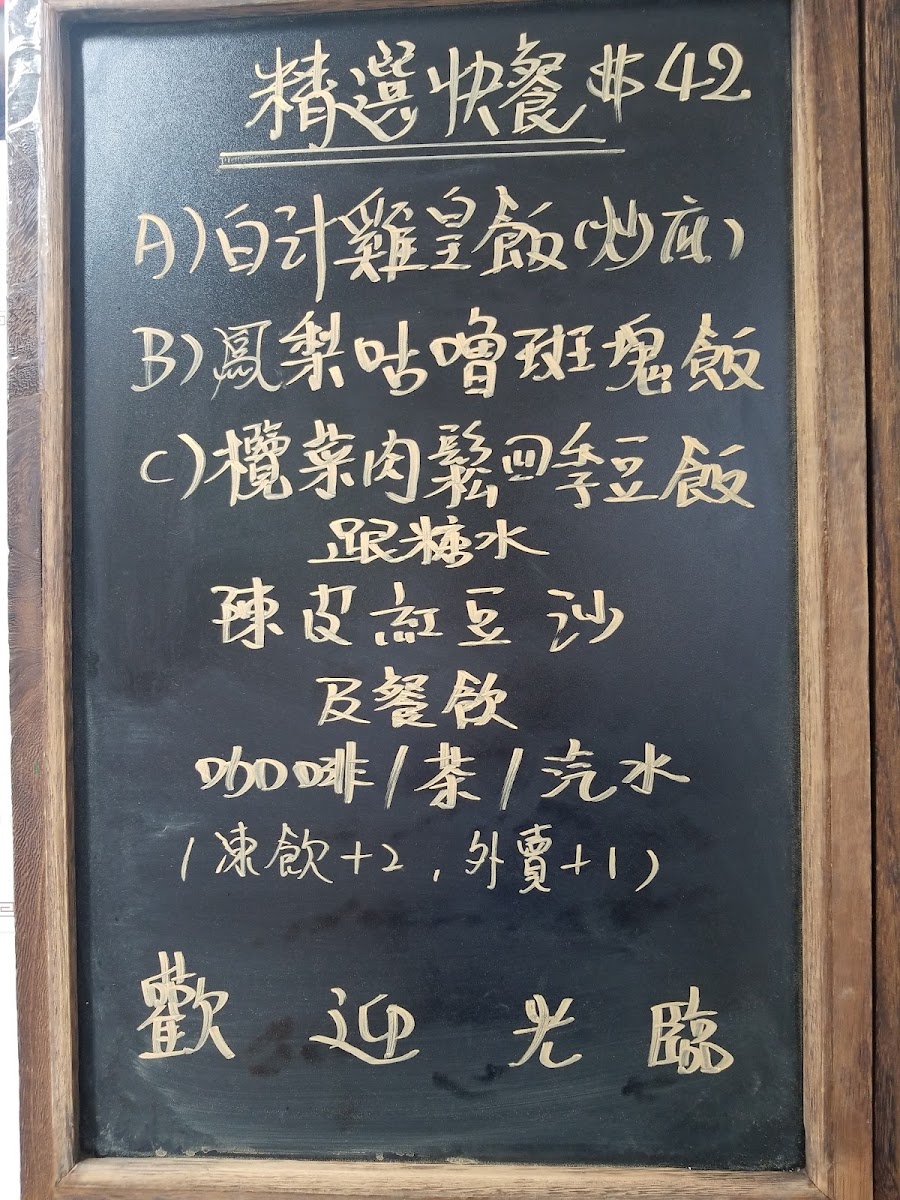 精選快餐$42
A)白汁雞皇飯(炒底)
B)鳳梨咕嚕班塊飯
C)欖菜肉鬆四季豆飯
跟糖水
陳皮紅豆沙
及餐飲
咖啡/茶/汽水
(凍飲+2,外賣+1)
歡迎光臨